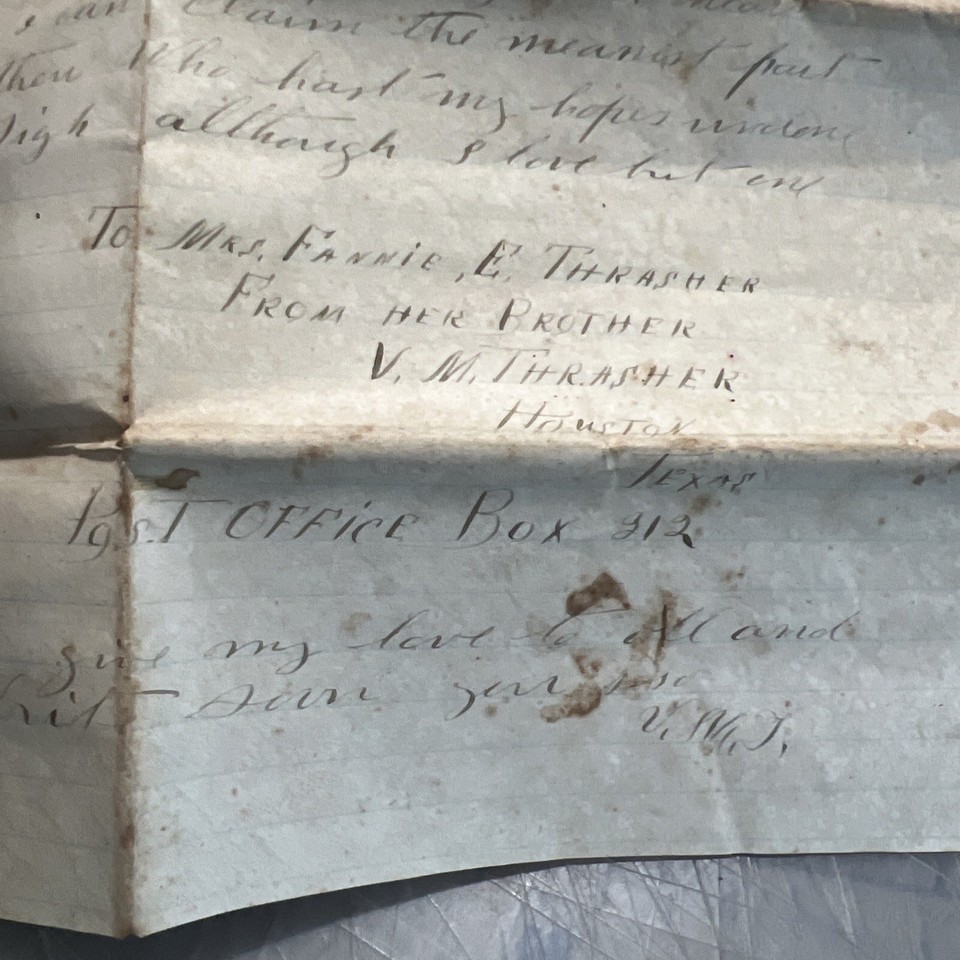 can claim the meanest part
thou who hast my hopes undone
sigh allthough I love but one
To Mrs. Fannie E. Thrasher
From her Brother
V. M. Thrasher
Houston
Texas
Post Office Box 212
give my love to all and
soon your
V. M. T.